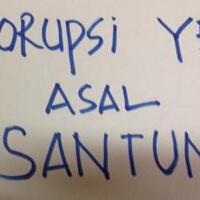 ORUPSi Y
ASAL
SANTUN